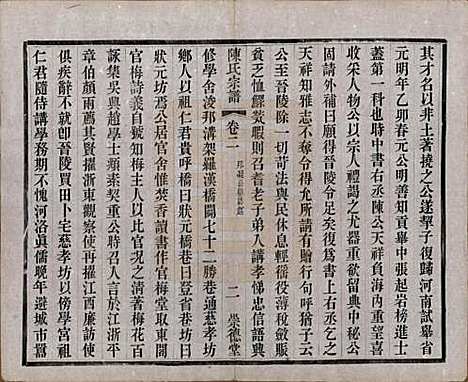 其才名以非土著撓之公遂挈子復歸河南試舉省
元明年乙卯春元公明善知貢舉中張起岩榜進士
蓋第一科也時中書右丞陳公天祥負海內重望喜
收采人公以宗人禮貌之尤器重欲留典中祕公
固請外補曰願得晉陵令足矣復爲書上右丞乞之
天祥知雅志不奪允所請有贈行句呼猶子云
公至晉陵除一切苛法與民休息輕徭役薄稅斂賑
貧乏恤鰥寡暇則召耆老子弟人講孝悌忠信語興
陳氏宗譜
卷二
二
崇德堂
修學舍浚邗溝架羅漢橋闢七十二勝巷通慈孝坊
鄉人以祖仁君貴呼橋曰狀元橋巷曰登省巷坊曰
狀元坊云公居官衣不完采焚香讀書作官梅堂取東閣
官梅詩義自况梅主人以比官况之清著梅花百
詠集吳興趙學士素愛重公時召人言於江浙平
章伯顏兩薦其才擢浙東觀察使再擢江西廉訪使
俱疾辭不就日晉陵買田卜宅慈孝坊以傍學宮祖
仁君隨侍講學務期不愧河洛眞儒晚年避城市囂